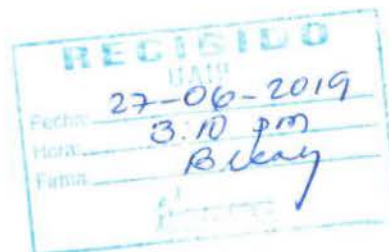 RECIBIDO
UAIP
Fecha: 27-06-2019
Hora: 3:10 pm
Firma: